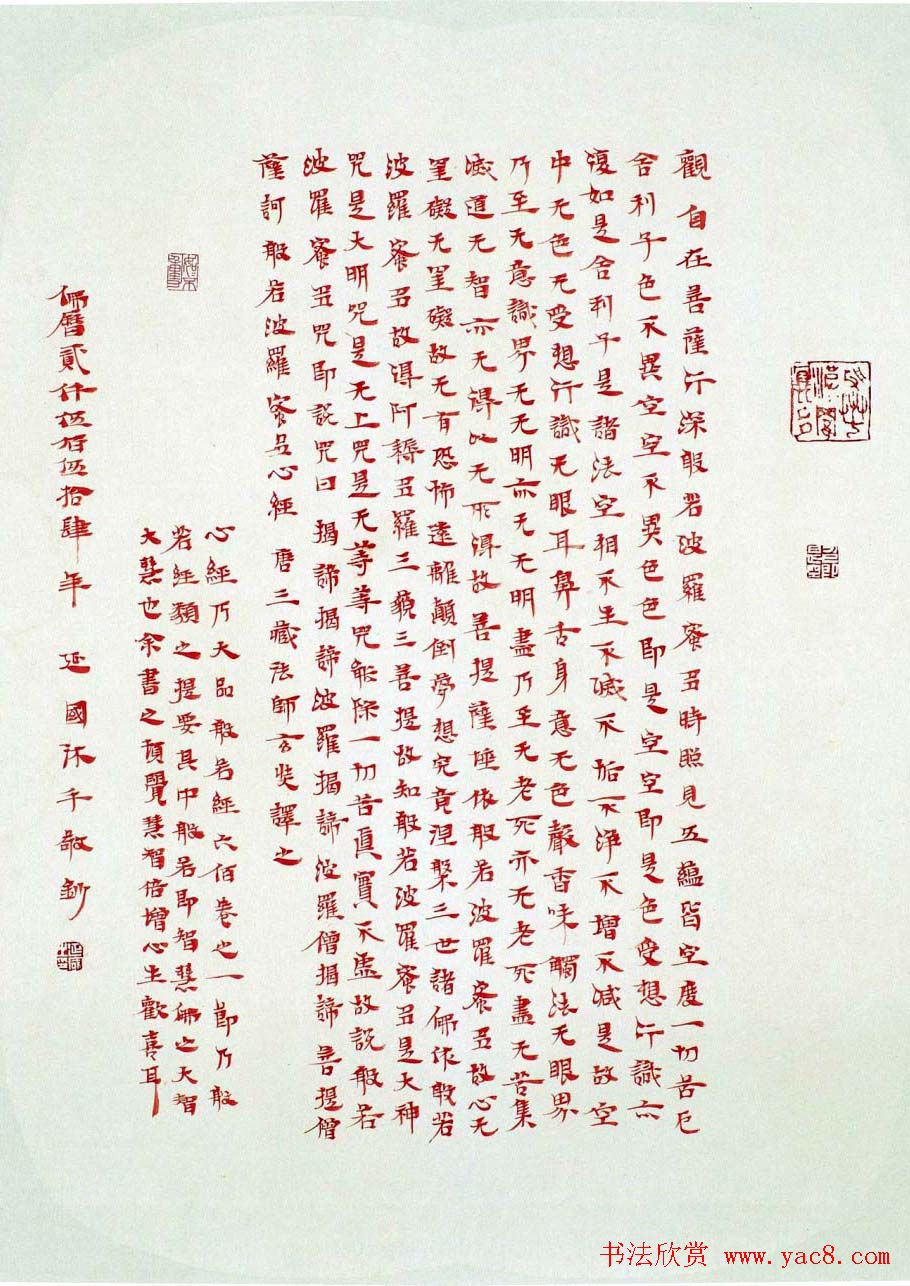 觀自在菩薩行深般若波羅蜜多時照見五蘊皆空度一切苦厄
舍利子色不異空空不異色色即是空空即是色受想行識亦
復如是舍利子是諸法空相不生不滅不垢不淨不增不減是故空
中无色无受想行識无眼耳鼻舌身意无色聲香味觸法无眼界
乃至无意識界无无明亦无无明盡乃至无老死亦无老死盡无苦集
滅道无智亦无得以无所得故菩提薩埵依般若波羅蜜多故心无
罣礙无罣礙故无有恐怖遠離顛倒夢想究竟涅槃三世諸佛依般若
波羅蜜多故得阿耨多羅三藐三菩提故知般若波羅蜜多是大神
咒是大明咒是无上咒是无等等咒能除一切苦真實不虛故說般若
波羅蜜多咒即說咒曰 揭諦揭諦波羅揭諦波羅僧揭諦菩提僧
薩訶般若波羅蜜多心經 唐三藏法師玄奘譯之
心經乃大品般若經六佰卷之一節乃般
若經類之提要其中般若即智慧佛之大智
大慧也余書之頓覺慧智倍增心生歡喜耳
佛曆貳仟伍佰伍拾肆年 延國沐手敬鈔
书法欣赏 www.yac8.com